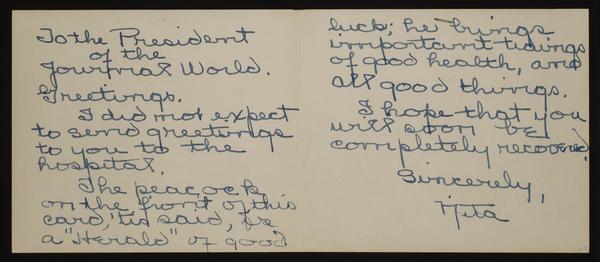 To the President
of the
Journal World.
Greetings.
I did not expect
to send greetings
to you to the
hospital.
The peacock
on the front of this
card, 'tis said, is
a "Herald" of good
luck; he brings
important tidings
of good health, and
all good things.
I hope that you
will soon be
completely recovered.
Sincerely,
Nita